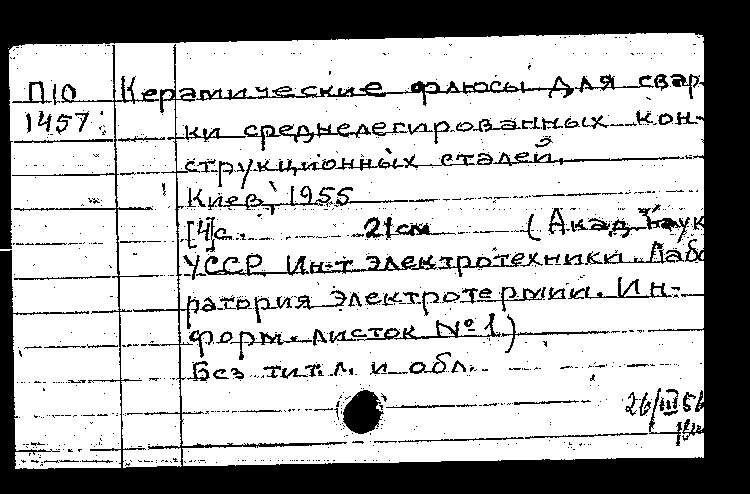 П10 Керамические флюсы для свар-
1457
ки среднелегированных кон-
струкционных сталей.
Киев, 1955
[4]с. 21см (Акад. Наук
УССР. Ин-т электротехники. Лабо
ратория электротермии. Ин-
форм. листок № 1)
Без тит. л. и обл.
26/III 56